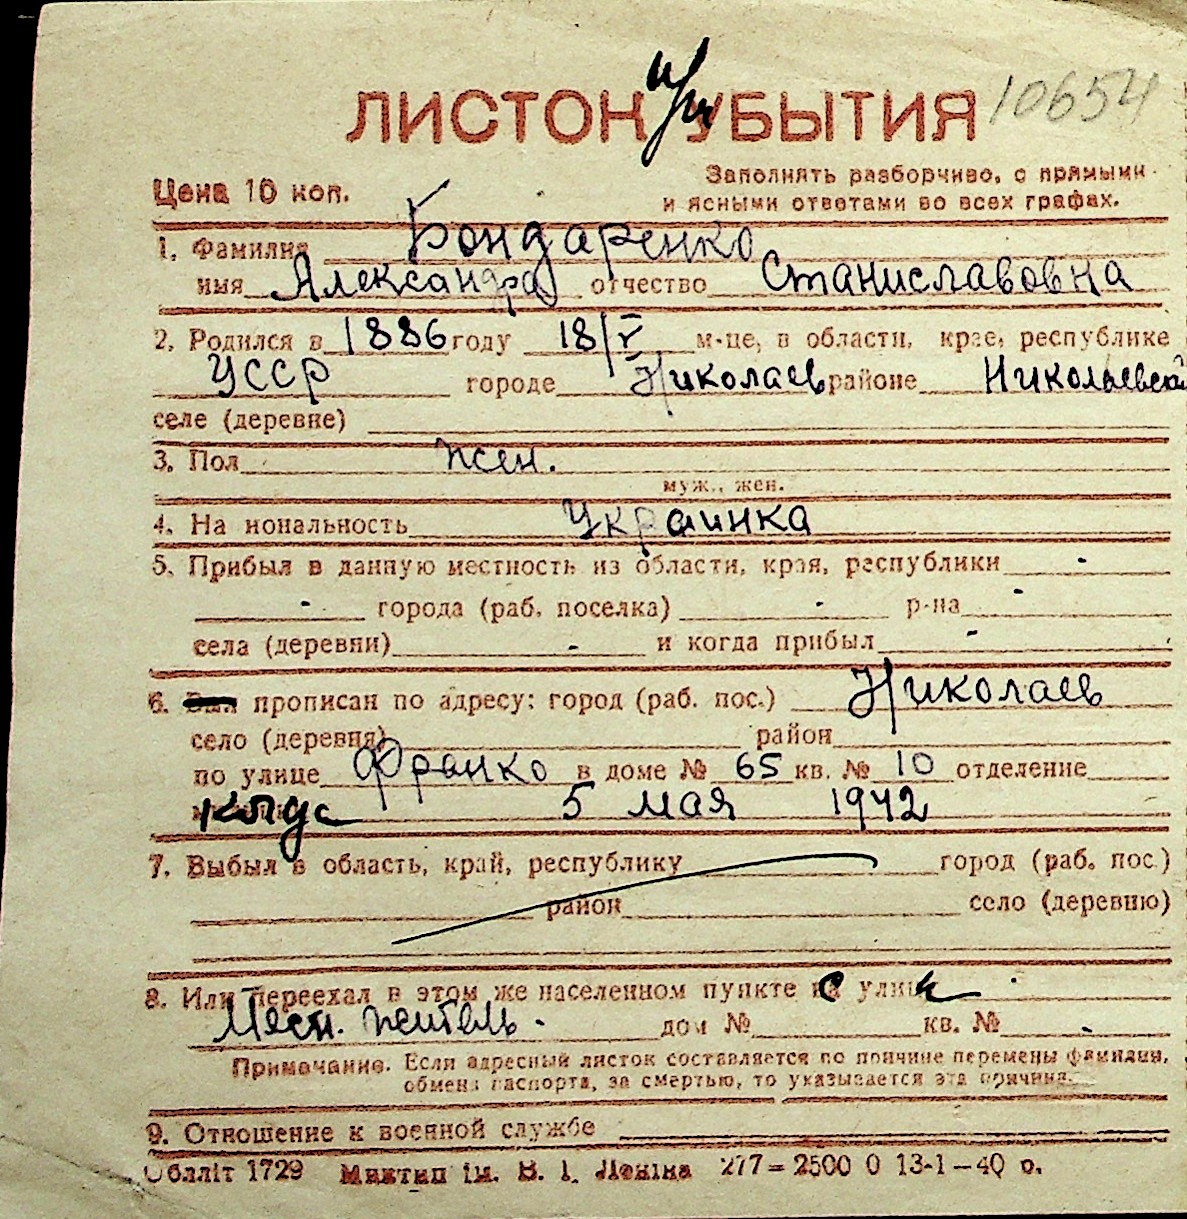 ЛИСТОК при УБЫТИЯ 10654
Цена 10 коп.
Заполнять разборчиво, с прямыми
и ясными ответами во всех графах.
1. Фамилия Бондаренко
имя Александра отчество Станиславовна
2. Родился в 1886 году 18/V м-це, в области, крае, республике
УССР городе Николаев районе Николаевской
селе (деревне)
3. Пол жен.
муж., жен.
4. На иональность Украинка
5. Прибыл в данную местность из области, края, республики -
- города (раб. поселка) - р-на -
села (деревни) - и когда прибыл -
6. Был прописан по адресу: город (раб. пос.) Николаев
село (деревня) район
по улице Франко в доме № 65 кв. № 10 отделение
когда 5 мая 1942
7. Выбыл в область, край, республику город (раб. пос.)
район село (деревню)
8. Или переехал в этом же населенном пункте с улицы -
Мест. житель - дом № кв. № -
Примечание. Если адресный листок составляется по причине перемены фамилии,
обмена паспорта, за смертью, то указывается эта причина.
9. Отношение к военной службе
Облліт 1729 Миктип ім. В. І. Леніна 277=2500 0 13-1—40 о.